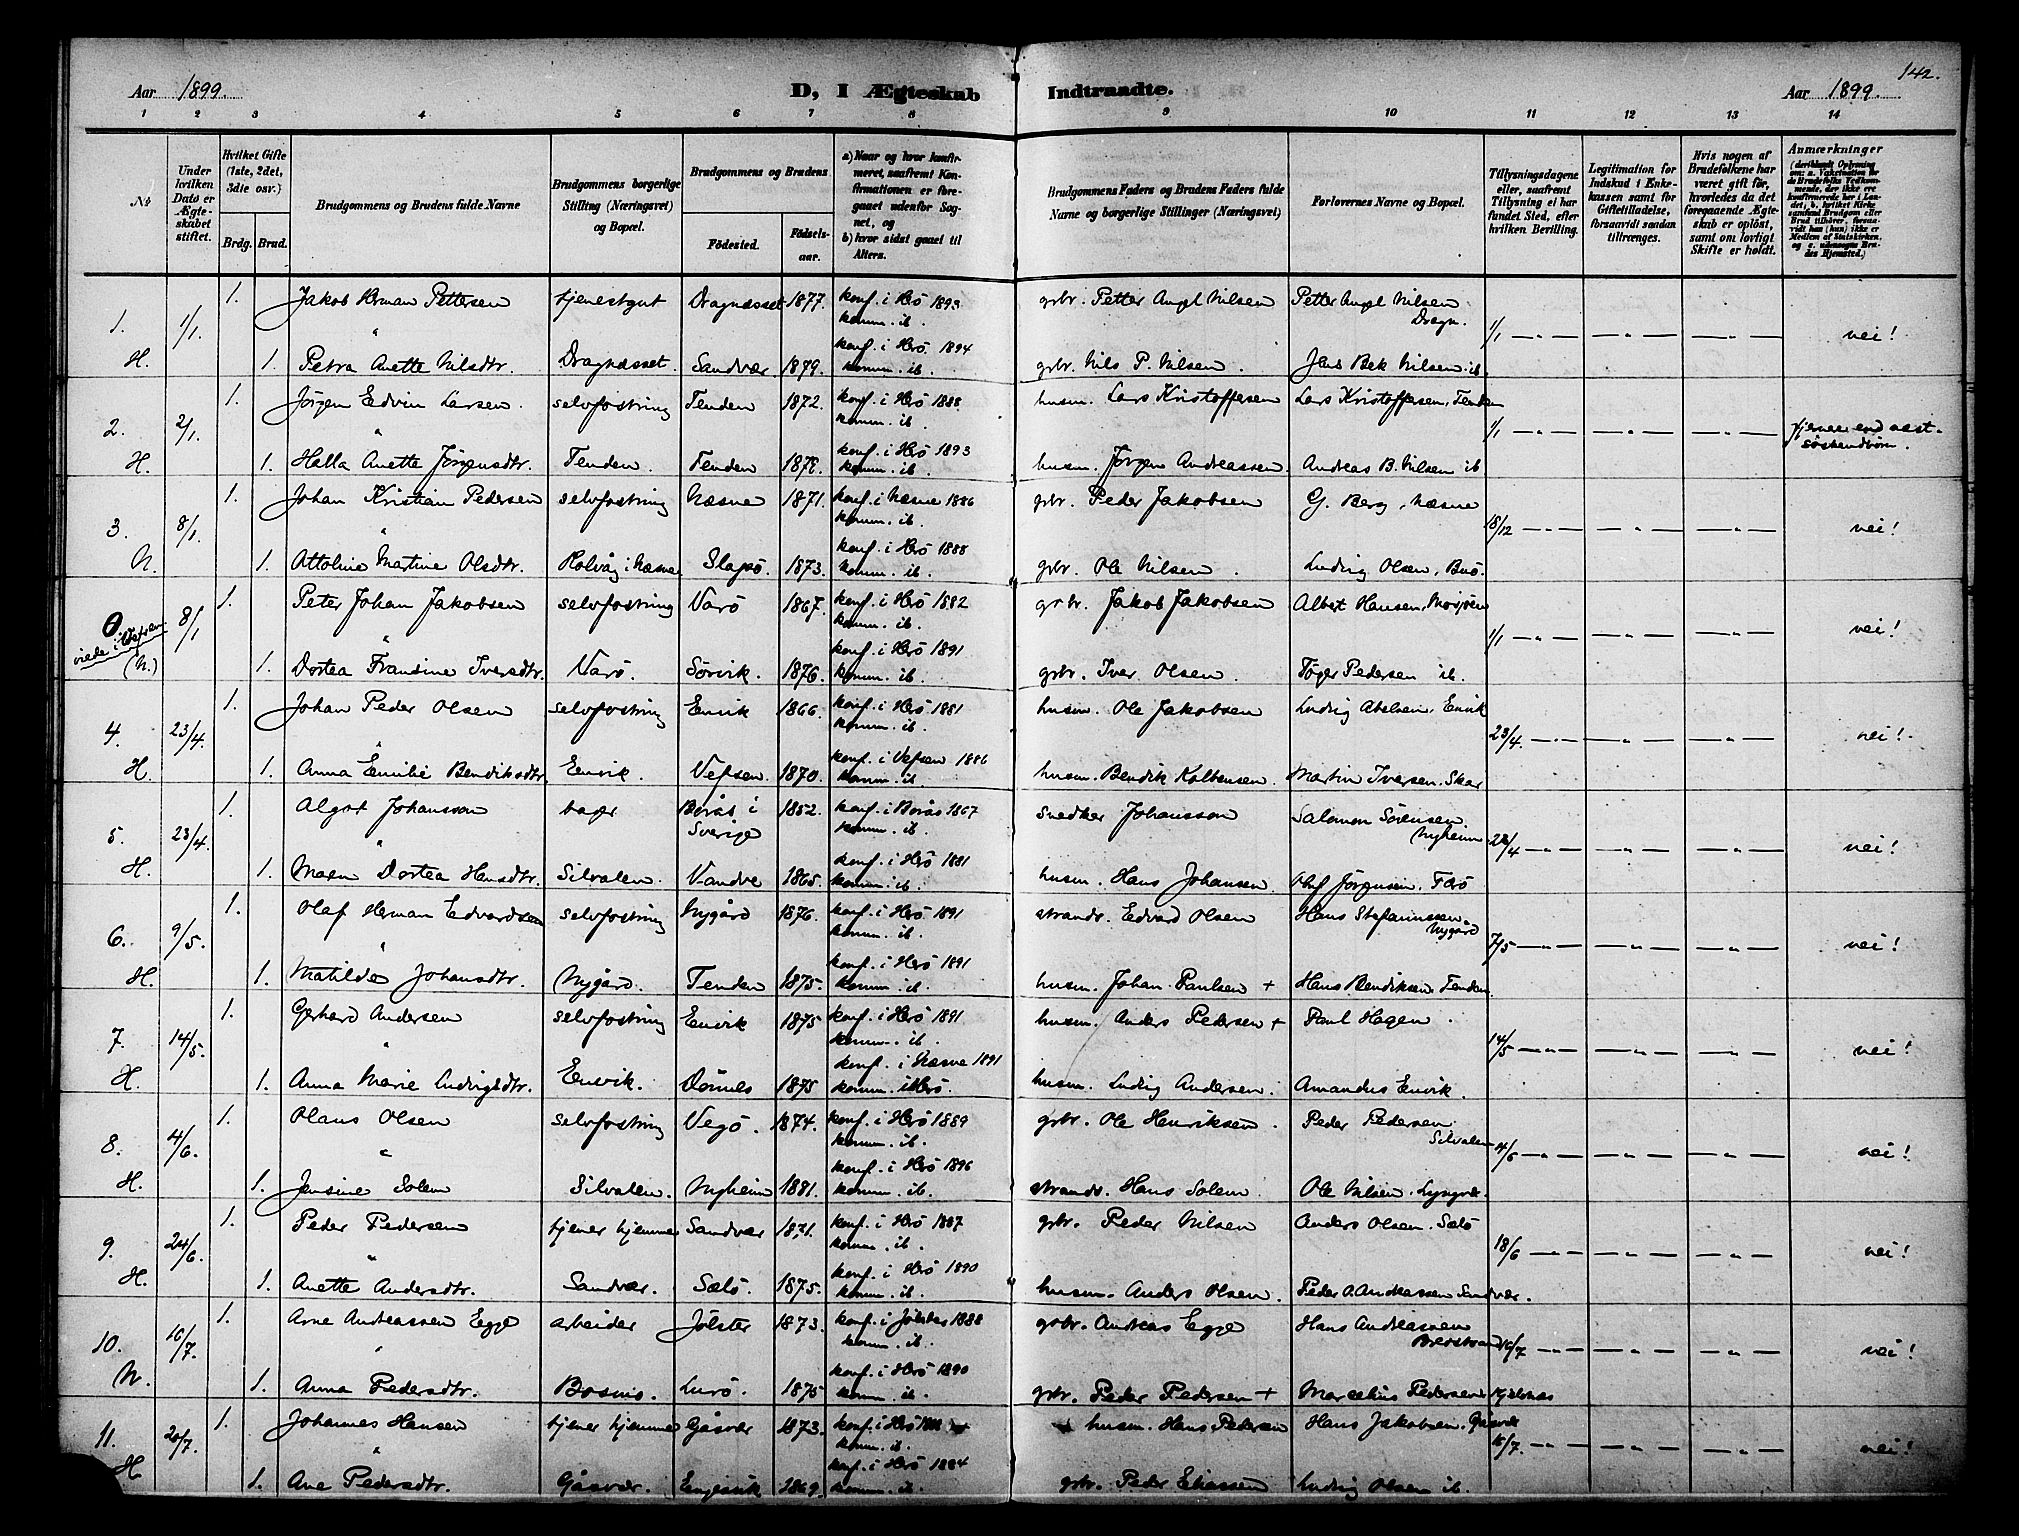 142.
Aar 1899. D, I Ægteskab Indtraadte. Aar 1899.
1 2 3 4 5 6 7 8 9 10 11 12 13 14
No
Under hvilken Dato er Ægteskabet stiftet.
Hvilket Gifte (1ste, 2det, 3die osv.)
Brdg. Brud.
Brudgommens og Brudens fulde Navne
Brudgommens borgerlige Stilling (Næringsvei) og Bopæl.
Brudgommens og Brudens
Födested. Födselsaar.
a) Naar og hvor konfirmeret, saafremt Konfirmationen er foregaaet udenfor Sognet, og
b) hvor sidst gaaet til Alters.
Brudgommens Faders og Brudens Faders fulde Navne og borgerlige Stillinger (Næringsvei)
Forlovernes Navne og Bopæl.
Tillysningsdagene eller, saafremt Tillysning ei har fundet Sted, efter hvilken Bevilling.
Legitimation for Indskud i Enkekassen samt for Giftetilladelse, forsaavidt saadan tiltrænges.
Hvis nogen af Brudefolkene har været gift för, hvorledes da det foregaaende Ægteskab er oplöst, samt om lovligt Skifte er holdt.
Anmærkninger
1. H. 1/1 1. Jakob Herman Pettersen tjenestgut Dragnæsset 1877. konf. i Herö 1893 komm. ib. grbr. Petter Angel Nilsen Petter Angel Nilsen Dragn. 1/1 — " — — " — — " — nei!
1. Petra Anette Nilsdtr. Dragnæsset Sandvær 1879. konf. i Herö 1894 komm. ib. grbr. Nils P. Nilsen. Jens Bek Nilsen ib.
2. H. 2/1. 1. Jörgen Edvin Larsen. selvfostring Tenden 1872. konf. i Herö 1888. komm. ib. husm. Lars Kristoffersen Lars Kristoffersen, Tenden 1/1 — " — — " — — " — fjernere end næst-söskendbörn.
1. Halla Anette Jörgensdtr. Tenden. Tenden 1878. konf. i Herö 1893 komm. ib. husm. Jörgen Andreassen Andreas B. Nilsen ib
3. N. 8/1. 1. Johan Kristian Pedersen selvfostring Næsne 1871. konf. i Næsne 1886 komm. ib. grbr. Peder Jakobsen G. Berg, Næsne 18/12 — " — — " — — " — nei!
1. Attoline Martine Olsdtr. Holvåg i Næsne Slapsö. 1873. konf. i Herö 1888 komm. ib. grbr. Ole Nilsen. Ludvig Olsen, Buö.
0 viede i Vefsen (N.) 8/1 1. Peter Johan Jakobsen selvfostring Varö 1867. konf. i Herö 1882 komm. ib. grbr. Jakob Jakobsen Albert Hansen, Mosjöen 1/1 — " — — " — — " — nei!
1. Dortea Fransine Iversdtr. Varö. Sörvik. 1876. konf. i Herö 1891 komm. ib. grbr. Iver Olsen. Töger Pedersen ib.
4. H. 23/4. 1. Johan Peder Olsen selvfostring Envik 1866. konf. i Herö 1881 komm. ib. husm. Ole Jakobsen Ludvig Abelsen, Envik 23/4. — " — — " — — " — nei!
1. Anna Emilie Bendiksdtr. Envik. Vefsen. 1870. konf. i Vefsen 1886 komm. ib. husm. Bendik Kolbensen Martin Iversen. Skar
5. H. 23/4. 1. Algot Johansson bager Borås i Sverige 1852. konf. i Borås 1867 komm. ib. snedker Johansson Salomon Sörensen Nyheim 23/4 — " — — " — — " — nei!
1. Maren Dortea Hansdtr. Silvalen. Vandve 1865. konf. i Herö 1881 komm. ib. husm. Hans Johansen. Oluf Jörgensen. Färö
6. H. 9/5. 1. Olaf Herman Edvardsen selvfostring Nygård 1876. konf. i Herö 1891 komm. ib. strands. Edvard Olsen Hans Stefanussen Nygård 7/5 — " — — " — — " — nei!
1. Matilde Johansdtr. Nygård. Tenden 1875. konf. i Herö 1891 komm. ib. husm. Johan Paulsen + Hans Bendiksen. Tenden.
7. H. 14/5. 1. Gerhard Andersen selvfostring Envik 1875 konf. i Herö 1891 komm. ib. husm. Anders Pedersen + Paul Hagen. 14/5 — " — — " — — " — nei!
1. Anna Marie Ludvigsdtr. Envik. Dönnes 1875 konf. i Næsne 1891 komm. i Herö. husm. Ludvig Andersen. Amandus Envik.
8. H. 4/6. 1. Olaus Olsen selvfostring Vegö. 1874. konf. i Herö 1889 komm. ib. grbr. Ole Henriksen. Peder Pedersen. Silvalen 4/6 — " — — " — — " — nei!
1. Jensine Solem Silvalen. Nyheim 1881. konf. i Herö 1896 komm. ib. strands. Hans Solem. Ole Nilsen.
9. H. 24/6. 1. Peder Pedersen tjener hjemme Sandvær 1871. konf. i Herö 1887 komm. ib. grbr. Peder Nilsen Anders Olsen. Sælö 18/6 — " — — " — — " — nei!
1. Anette Andersdtr. Sandvær. Sælö. 1875. konf. i Herö 1890 komm. ib. husm. Anders Olsen. Peder O. Andreassen Sandvær.
10. N. 16/7. 1. Arne Andreassen Egge arbeider Jölster 1873. konf. i Jölster 1888 komm. ib. grbr. Andreas Egge Hans Andreassen 16/7 — " — — " — — " — nei!
1. Anna Pedersdtr. Bosmo. Lurö. 1875 konf. i Herö 1890 komm. ib. grbr. Peder Pedersen + Marcelius Pedersen,
11. H 20/7. 1. Johannes Hansen tjener hjemme Gåsvær 1873. konf. i Herö komm. ib. husm. Hans Pedersen Hans Jakobsen. Gåsvær 16/7. — " — — " — — " — nei!
1. Ane Pedersdtr. Gåsvær. 1869. konf. i Herö 1884 komm. ib. grbr. Peder Eliassen Ludvig Olsen ib.